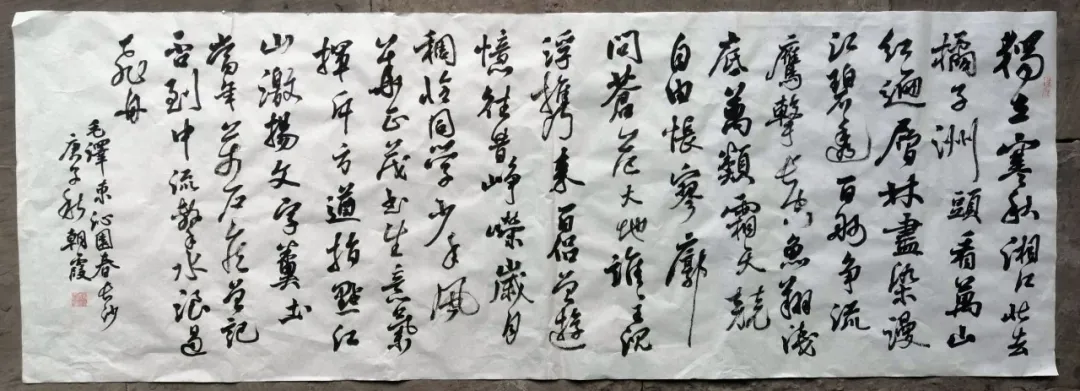 獨立寒秋湘江北去
橘子洲頭看萬山
紅遍層林盡染漫
江碧透百舸争流
鷹擊长空魚翔淺
底萬類霜天競
自由悵寥廓
問蒼茫大地誰主沉
浮攜來百侣曾遊
憶往昔崢嶸歲月
稠恰同學少年風
華正茂书生意氣
揮斥方遒指點江
山激揚文字糞土
當年万户侯曾記
否到中流擊水浪遏
飛舟
毛澤東沁园春长沙
庚子秋朝霞